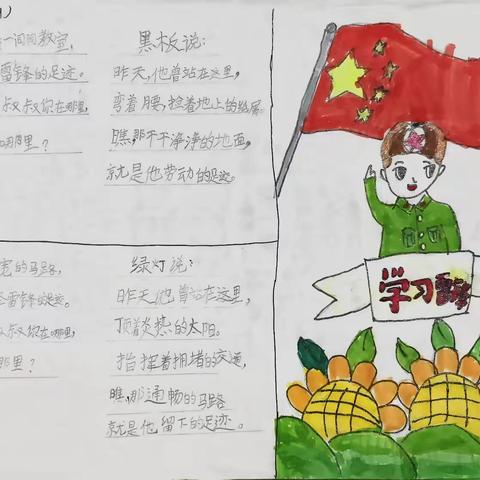 一间间教室,
雷锋的足迹。
叔叔你在哪里,
哪里?
黑板说:
昨天,他曾站在这里,
弯着腰,捡着地上的纸屑
瞧,那干干净净的地面,
就是他劳动的足迹。
宽的马路,
雷锋的足迹。
叔叔你在哪里,
那里?
绿灯说:
昨天他曾站在这里,
顶着炎热的太阳。
指挥着拥堵的交通,
瞧,那通畅的马路
就是他留下的足迹。
学习雷锋